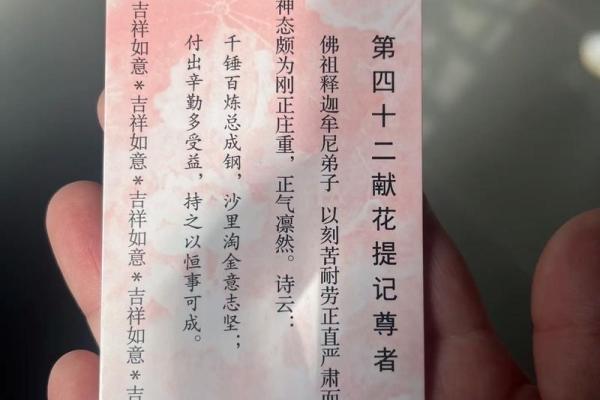 第四十二献花提记尊者
佛祖释迦牟尼弟子 以刻苦耐劳正直严肃而
神态颇为刚正庄重，正气凛然。诗云：
千锤百炼总成钢，沙里淘金意志坚；
付出辛勤多受益，持之以恒事可成。
吉祥如意*吉祥如意*吉祥如意*吉祥如意*吉